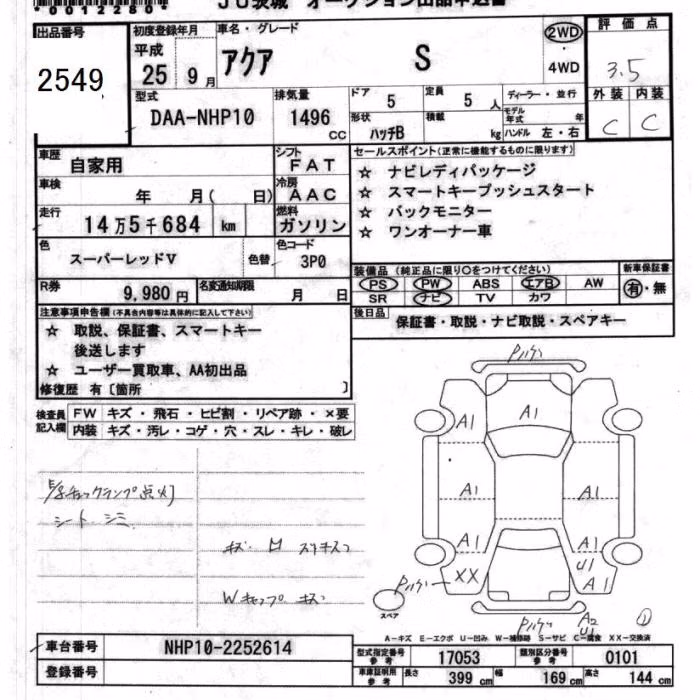 *0012280*
JU茨城 オークション出品申込書
出品番号
2549
初度登録年月
平成
25年 9月
車名・グレード
アクア S
2WD
・
4WD
評価点
3.5
外装 内装
C C
型式
DAA-NHP10
排気量
1496 CC
ドア 5
定員 5 人
形状 ハッチB
積載 kg
ディーラー・並行
モデル年式 年
ハンドル 左・右
車歴 自家用
シフト FAT
車検 年 月( 日)
冷房 AAC
走行 14万5千684 km
燃料 ガソリン
色 スーパーレッドV
色替
色コード 3P0
R券 9,980円
名変通知期限 月 日
セールスポイント(正常に機能するものに限ります)
☆ ナビレディパッケージ
☆ スマートキープッシュスタート
☆ バックモニター
☆ ワンオーナー車
装備品 (純正品に限り○をつけてください)
PS PW ABS エアB AW
SR ナビ TV カワ
新車保証書
有・無
後日品
保証書・取説・ナビ取説・スペアキー
注意事項申告欄(不具合内容等は具体的に記入して下さい)
☆ 取説、保証書、スマートキー
後送します
☆ ユーザー買取車、AA初出品
修復歴 有〔箇所 〕
検査員記入欄
FW キズ・飛石・ヒビ割・リペア跡・×要
内装 キズ・汚レ・コゲ・穴・スレ・キレ・破レ
チェックランプ点灯
シート シミ
Wキャップ キズ
A1
A1
A1 A1
A1 A1
U1
XX A1
A2
U1
①
スペア
A-キズ E-エクボ U-凹み W-補修跡 S-サビ C-腐食 XX-交換済
車台番号 NHP10-2252614
登録番号
型式指定番号 参考 17053
類別区分番号 参考 0101
車庫証明用 参考 長さ 399 cm 幅 169 cm 高さ 144 cm